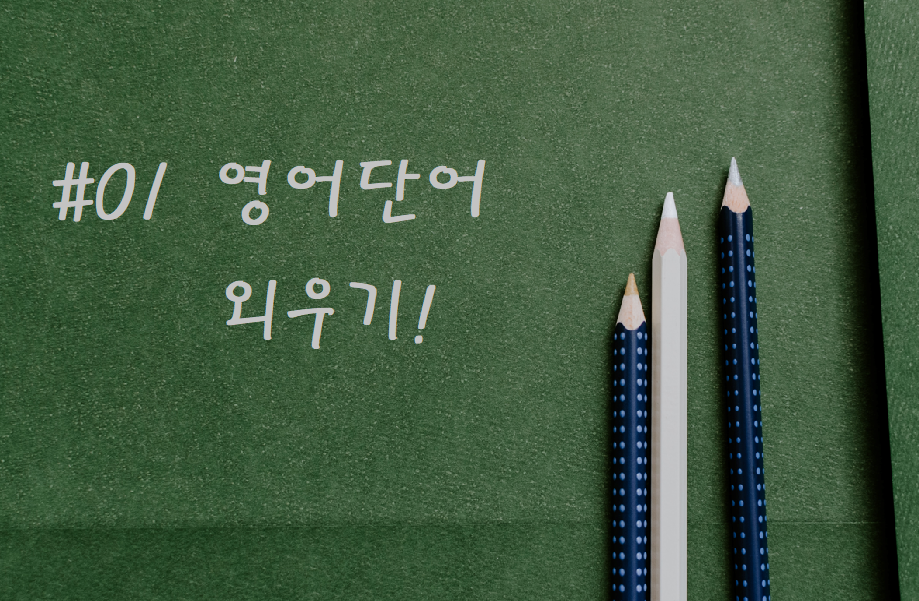 #01 영어단어
외우기!